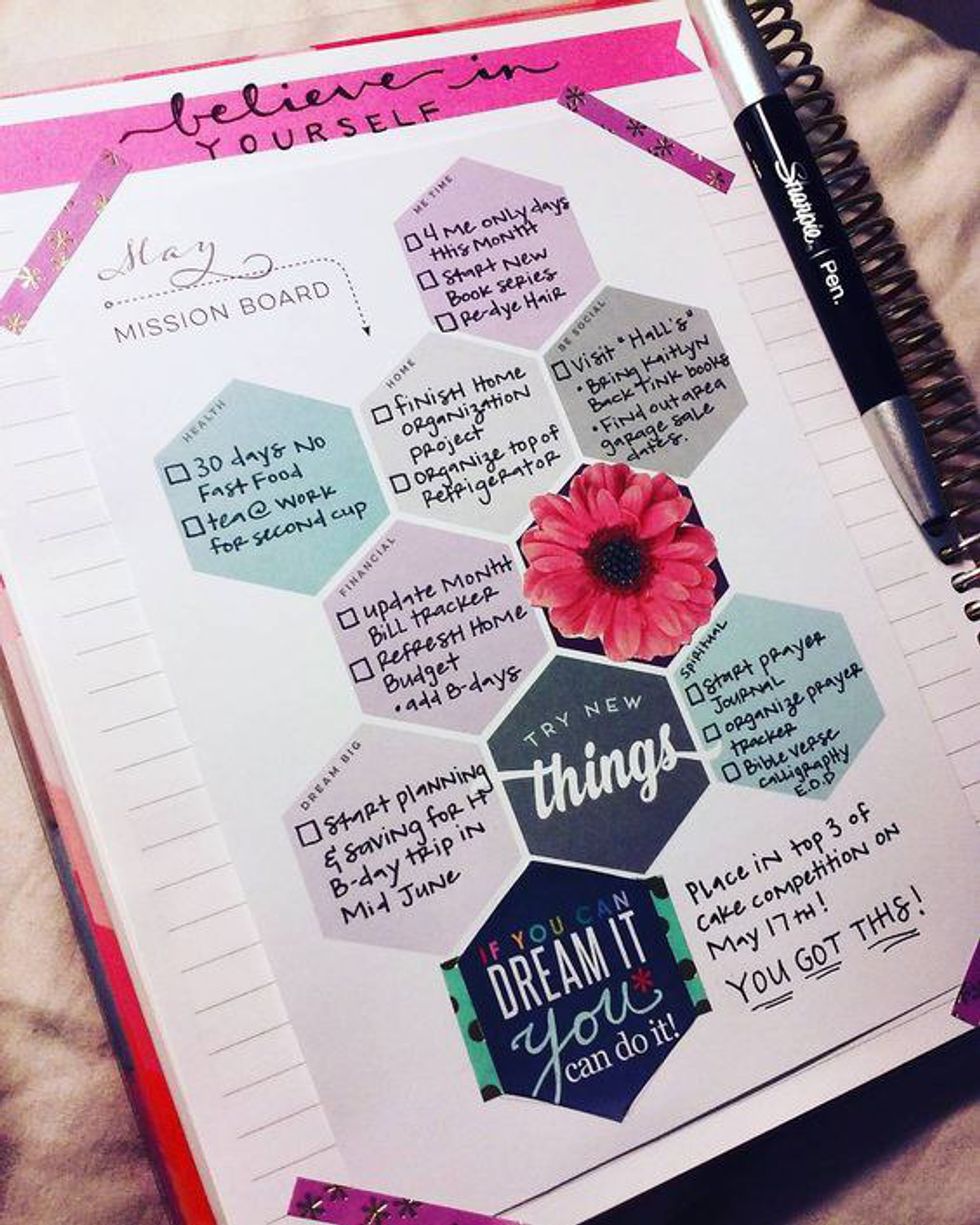 believe in
YOURSELF
May
MISSION BOARD
ME TIME
4 Me only days
this Month
Start New
Book series
Re-dye Hair
BE SOCIAL
Visit "Hall's"
• Bring Kaitlyn
Back Tink books
• Find out area
garage sale
dates.
HOME
Finish Home
Organization
Project
Organize top of
Refrigerator
HEALTH
30 days No
Fast Food
tea @ work
for second cup
FINANCIAL
update Month
Bill tracker
Refresh Home
Budget
• add B-days
spiritual
Start prayer
Journal
organize prayer
tracker
Bible verse
Calligraphy
E.O.D
TRY NEW
things
DREAM BIG
Start planning
& saving for H
B-day trip in
Mid June
IF YOU CAN
DREAM IT
you*
can do it!
Place in top 3 of
cake competition on
May 17th!
YOU GOT THIS!
Sharpie | Pen.